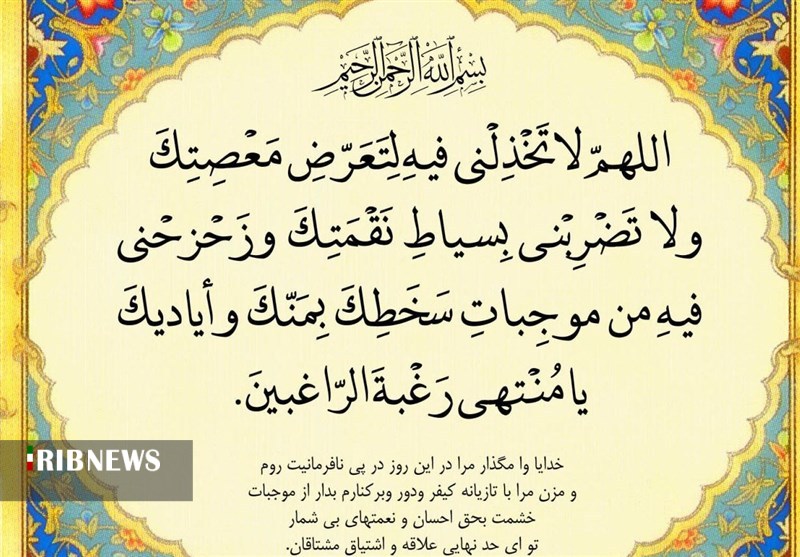 بِسْمِ اللَّهِ الرَّحْمَٰنِ الرَّحِيمِ
اللهمّ لا تَخْذِلْنی فیهِ لِتَعَرّضِ مَعْصِیَتِكَ
ولا تَضْرِبْنی بِسیاطِ نَقْمَتِكَ وزَحْزحْنی
فیهِ من موجِباتِ سَخَطِكَ بِمَنّكَ وأیادیكَ
یا مُنْتهی رَغْبةَ الرّاغبینَ.
خدایا وا مگذار مرا در این روز در پی نافرمانیت روم
و مزن مرا با تازیانه کیفر ودور وبرکنارم بدار از موجبات
خشمت بحق احسان و نعمتهای بی شمار
تو ای حد نهایی علاقه و اشتیاق مشتاقان.
IRIBNEWS